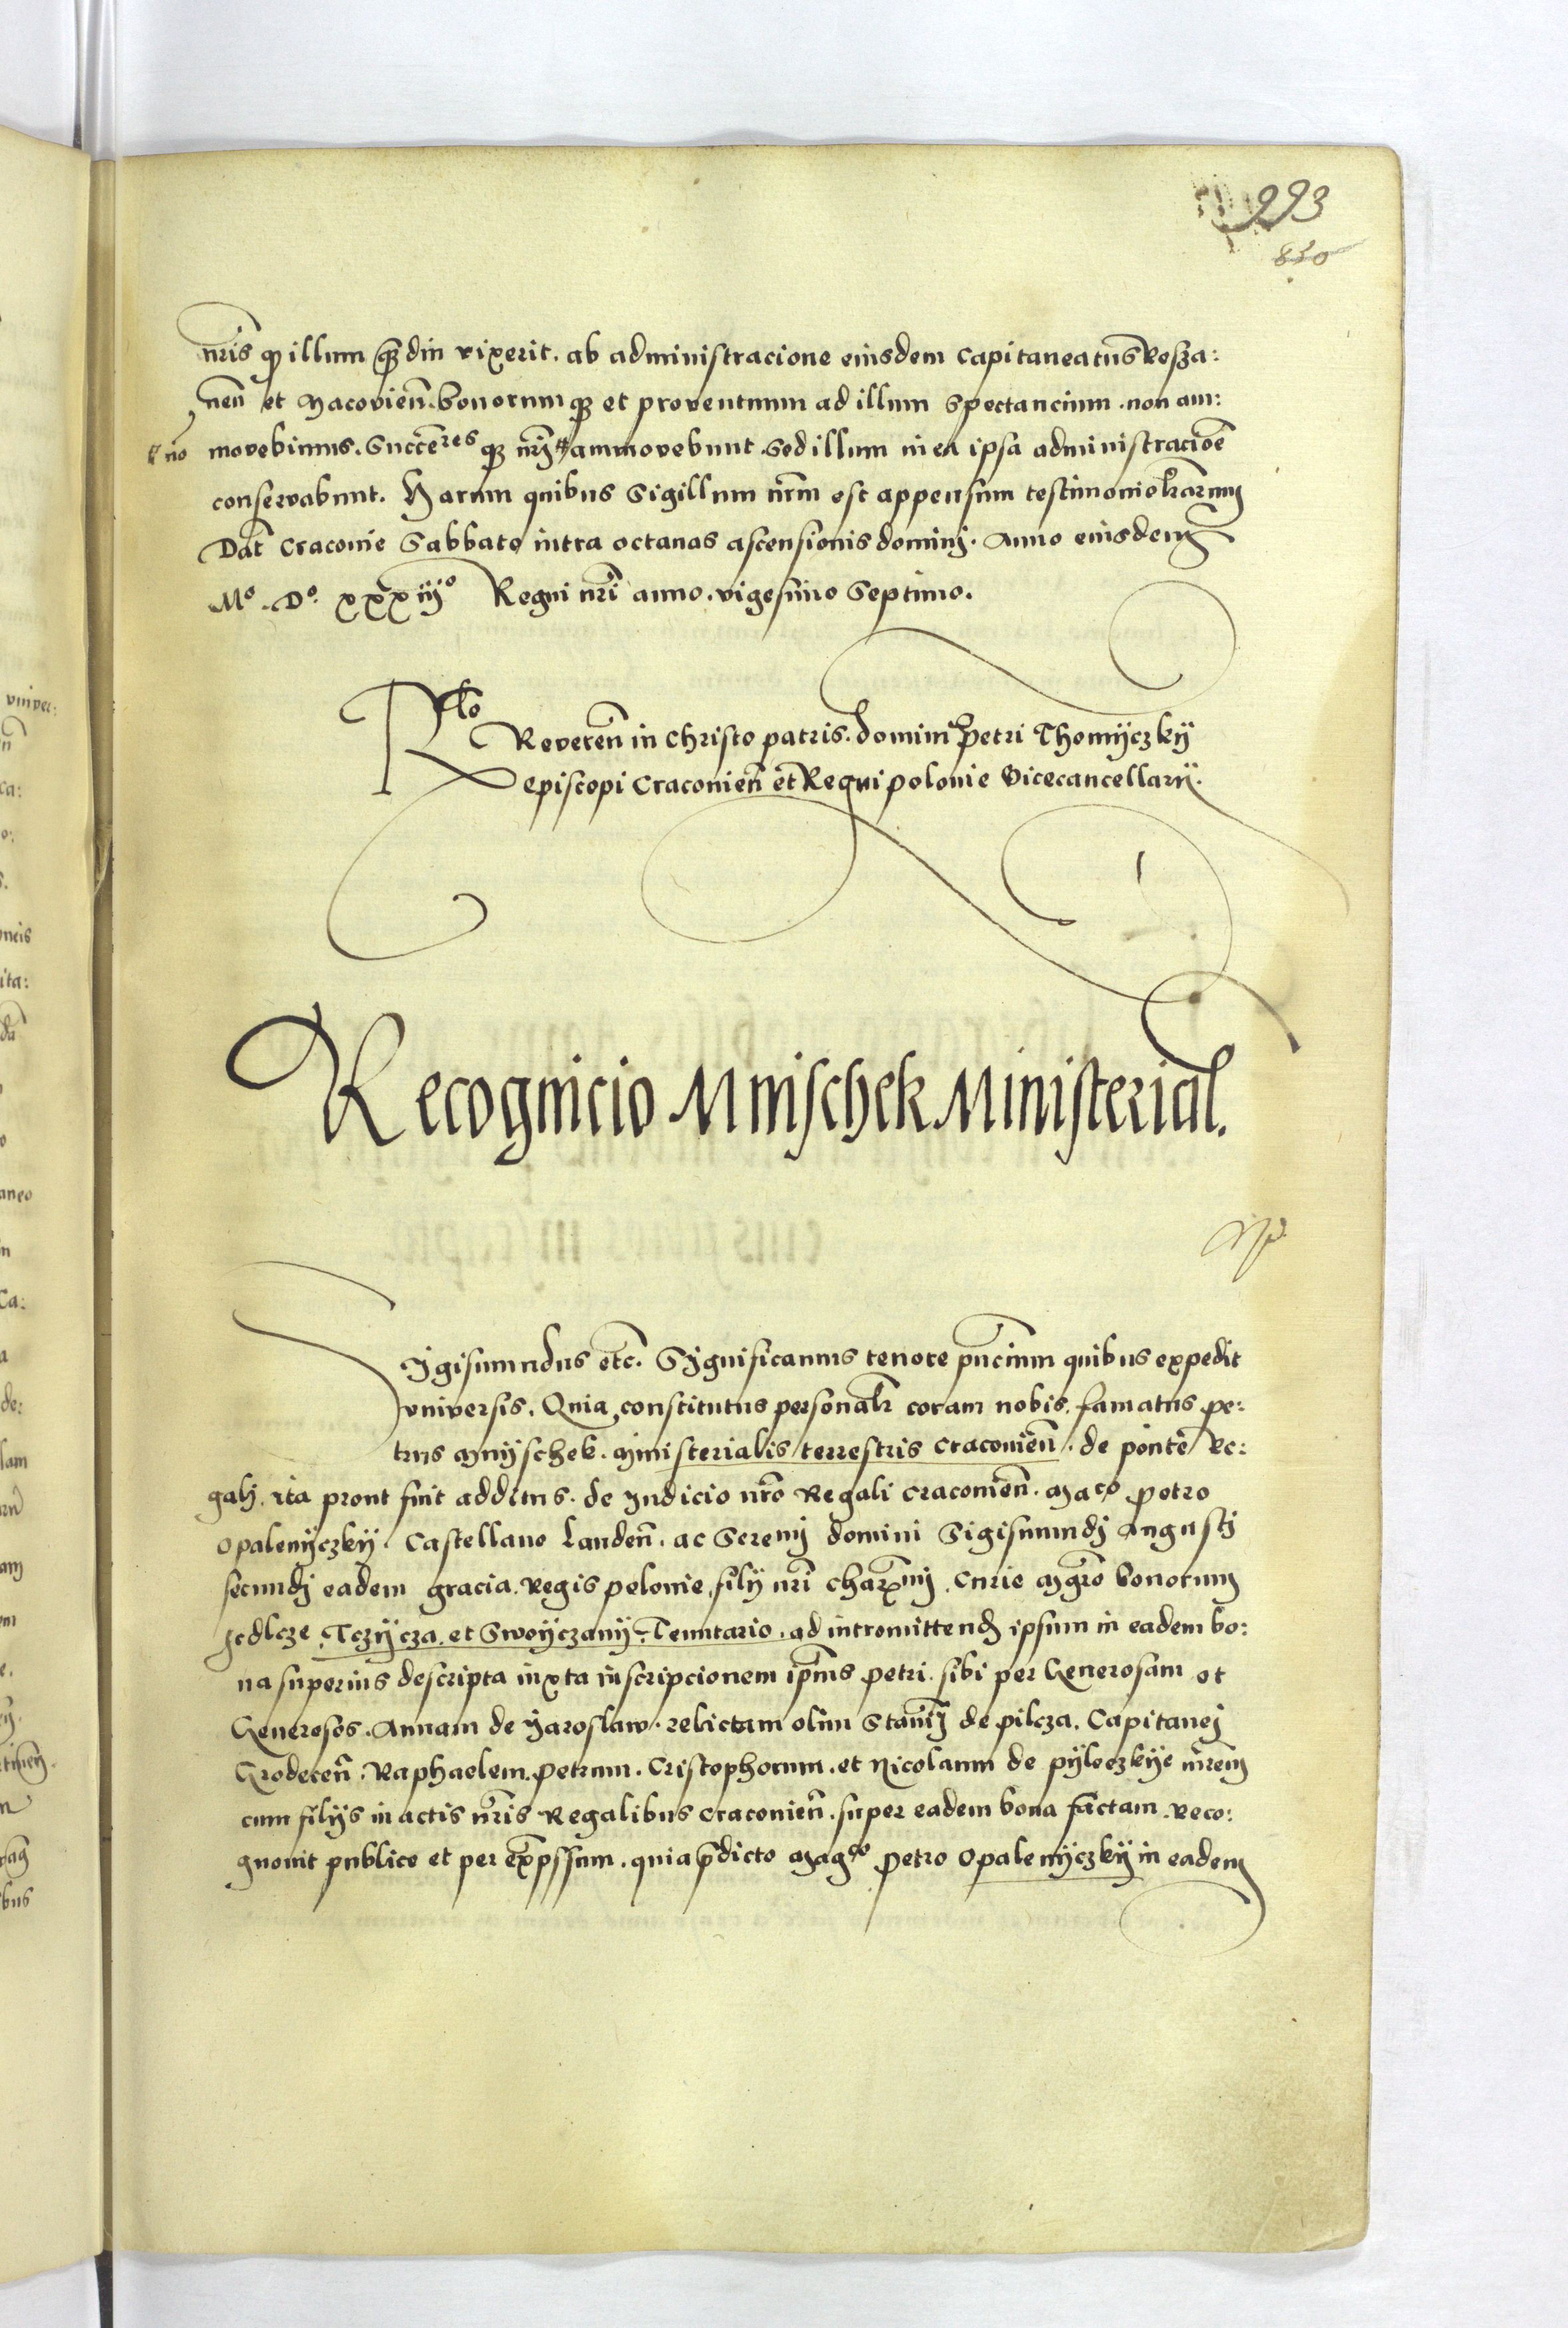 293
830
nr̃is qȝ illum q̃ȝdiu vixerit. ab administracione eiusdem Capitaneatus Rosza:
nen̄ et Macovien̄. bonorumqȝ et proventuum ad illum Spectancium. non am:
movebimus. Succe͠resqȝ nr̃ij ammovebunt. Sed illum in ea ipsa administracio͠e
no͠
conservabunt. Harum quibus Sigillum nr̃m est appensum testimonio lr̃arum
Dat̃ Cracovie Sabbato intra octavas ascensionis dominj. Anno eiusdem
Mº. Dº. xxxiijº Regni nr̃i anno. vigesimo Septimo.
Rclo
Reveren̄ in Christo patris. domini Petri Thomyczky
episcopi Cracovien̄ et Regni polonie Vicecancellarij.
Recognicio Mnischek Ministerial.
Sygismundus etc̃. Significamus tenore pn̄cium quibus expedit
vniversis. Quia constitutus personalr̃ coram nobis. famatus pe:
trus Mnyschek. Ministerialis terrestris Cracovien̄. de ponte Re:
galj. ita prout fuit additus. de Iudicio nr̃o Regali Cracovien̄. Maco Petro
Opalenyczky. Castellano Landen̄. ac Serenj domini Sigismundj Augustj
secundj eadem gracia. Regis polonie filij nr̃i char̃mj. Curie Mgr̃o bonorum
Jedlcze. Tczycza. et Swoyczany. Tenutario. ad intromittend̃ ipsum in eadem bo:
na superius descripta iuxta inscripcionem ip̃ius petri. sibi per Generosam et
Generosos. Annam de Jaroslaw. relictam olim Stan̄ij de pilcza. Capitanej
Grodecen̄. Raphaelem. petrum. Cristophorum. et Nicolaum de pyleczkye mr̃em
cum filijs in actis nr̃is Regalibus Cracovien̄. super eadem bona factam. Reco:
gnovit publice et per exp̃ssum. quia p̃dicto Magco Petro Opalenyczky in eadem